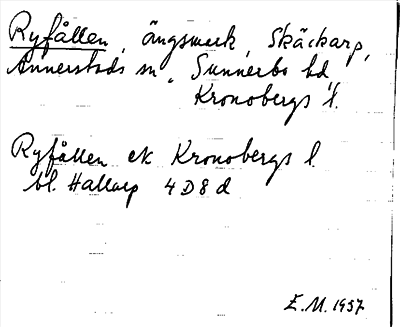 Ryfållen, ängsmark, Skäckarp,
Annerstads sn, Sunnerbo hd,
Kronobergs l.
Ryfållen ek Kronobergs l
bl. Hallarp 4D8d
E.M. 1957